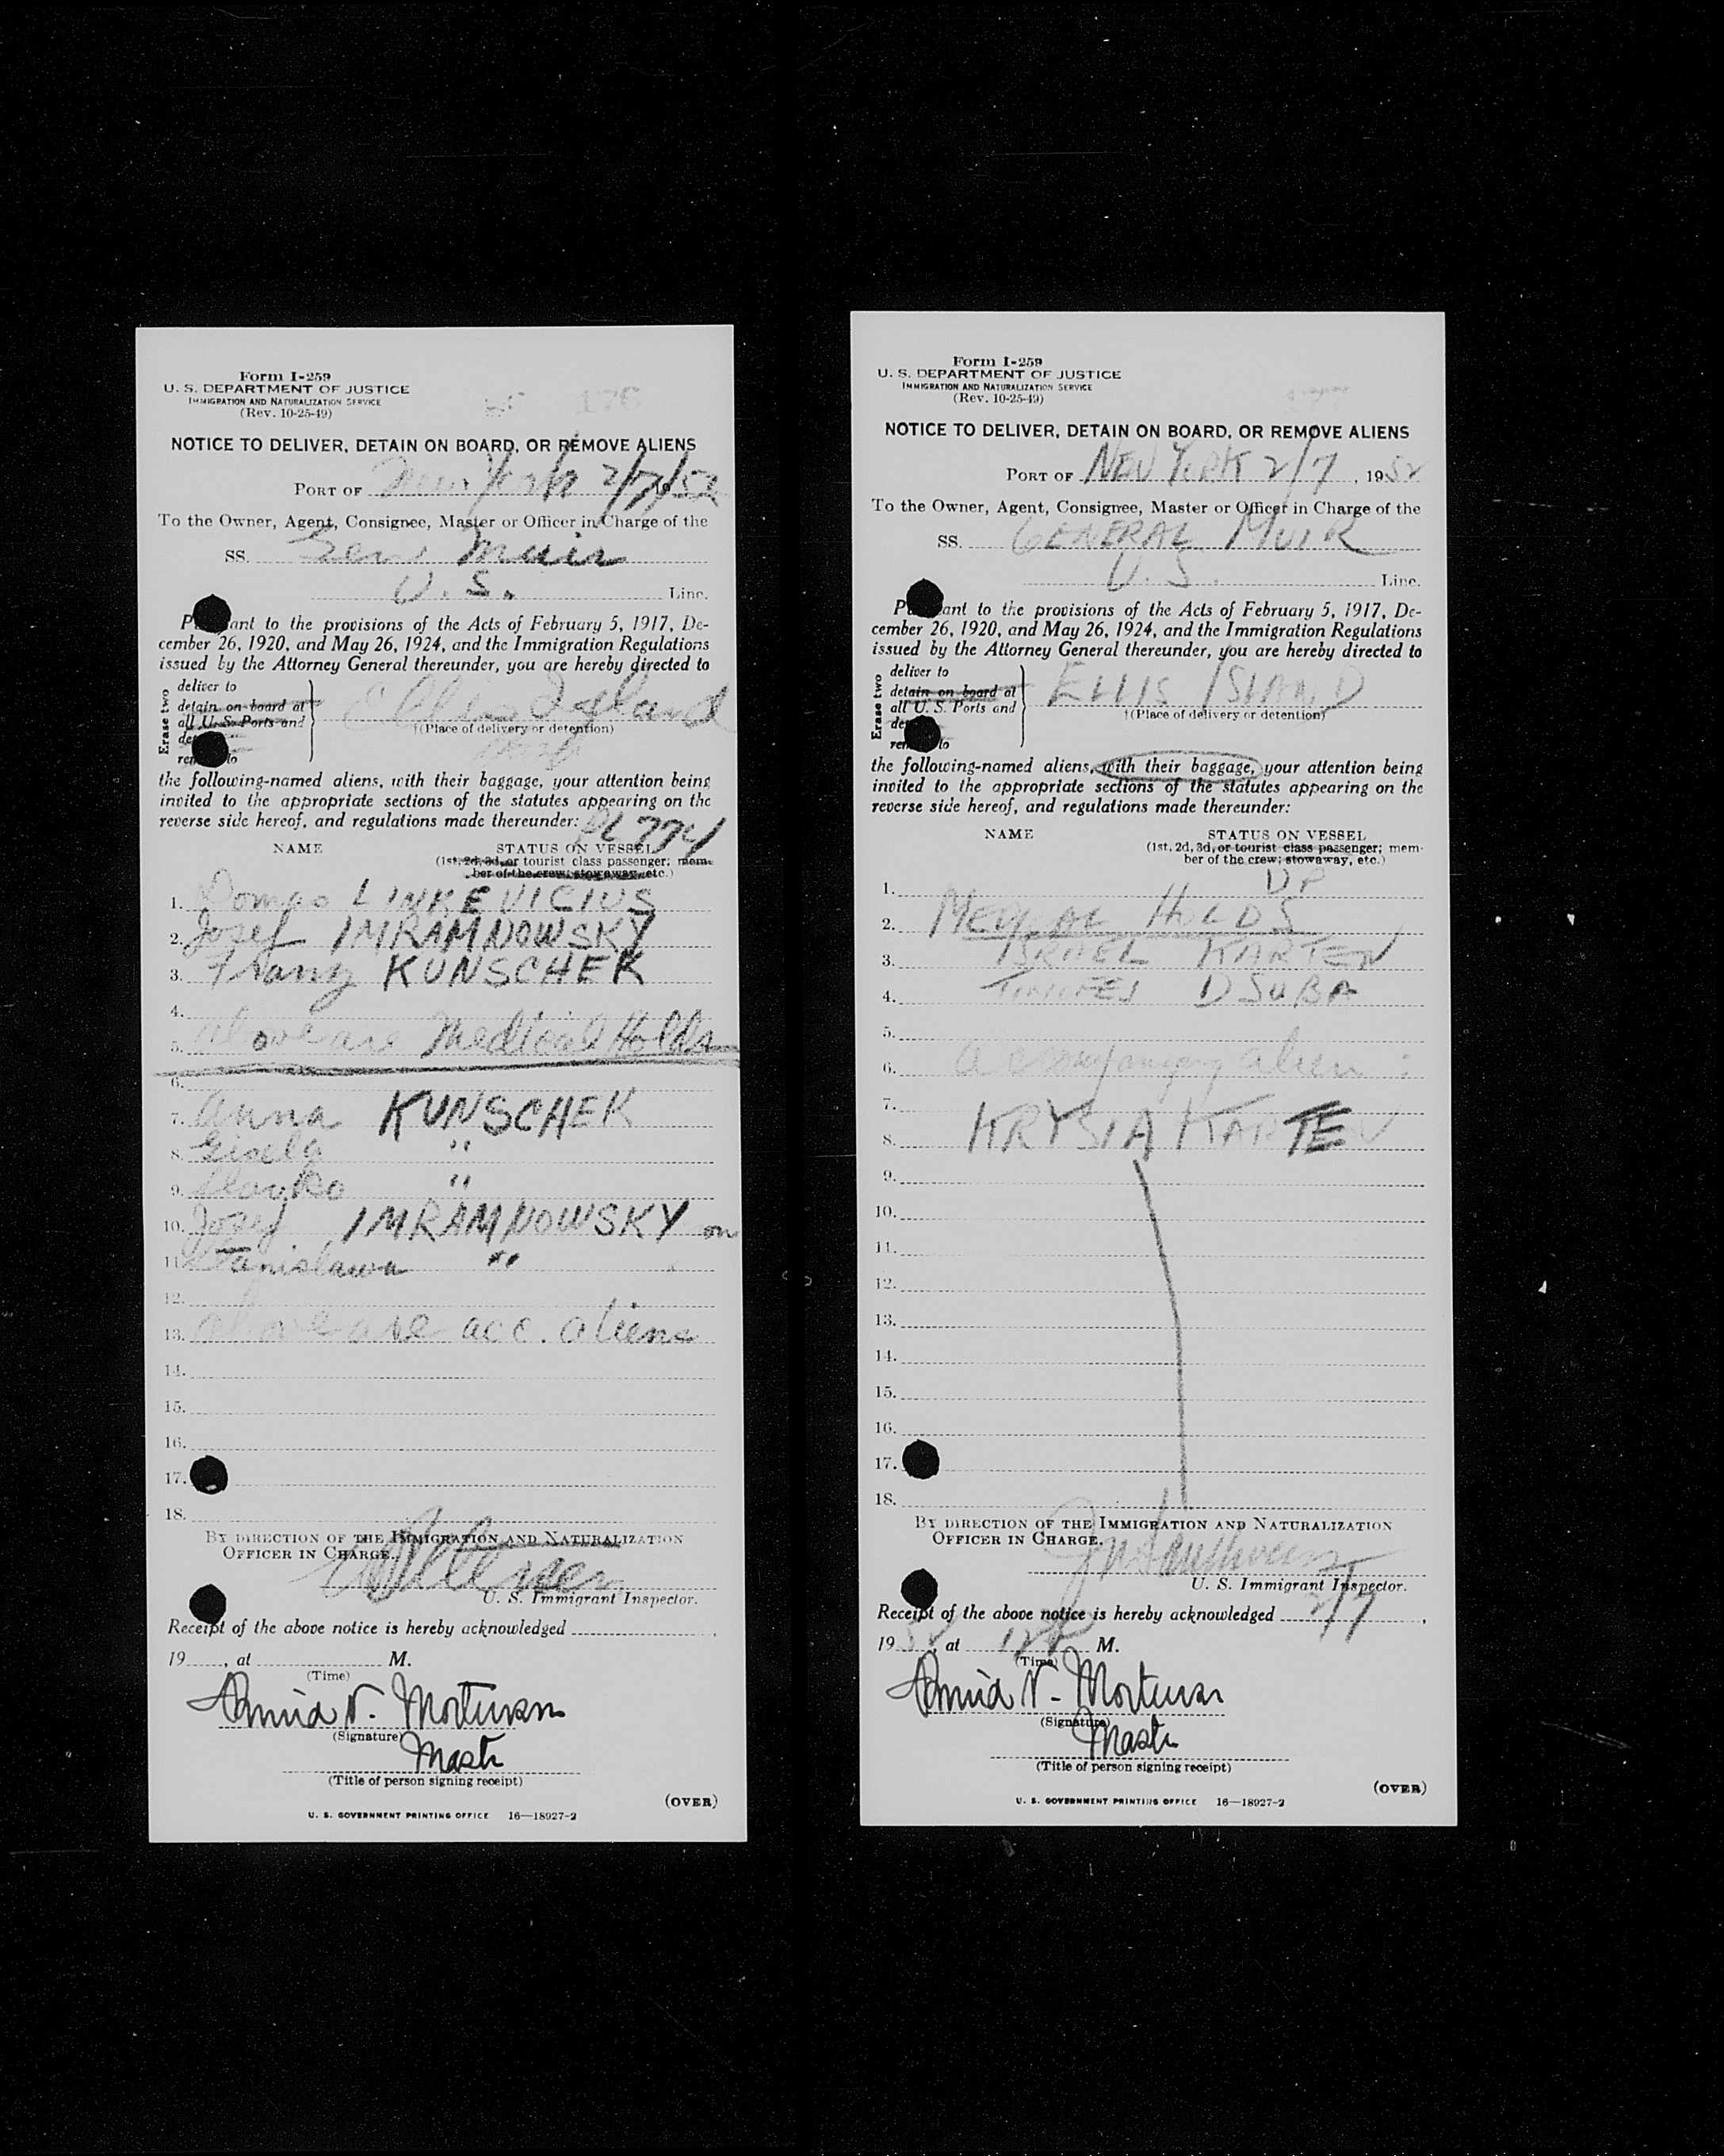 Form I-259
U. S. DEPARTMENT OF JUSTICE
IMMIGRATION AND NATURALIZATION SERVICE
(Rev. 10-25-49)
176
NOTICE TO DELIVER, DETAIN ON BOARD, OR REMOVE ALIENS
PORT OF New York 2/7/52
To the Owner, Agent, Consignee, Master or Officer in Charge of the
SS. Gen. Muir
U.S. Line.
P ant to the provisions of the Acts of February 5, 1917, De-
cember 26, 1920, and May 26, 1924, and the Immigration Regulations
issued by the Attorney General thereunder, you are hereby directed to
Erase two
deliver to
detain on board at
all U. S. Ports and
de
rem to
Ellis Island
†(Place of delivery or detention)
the following-named aliens, with their baggage, your attention being
invited to the appropriate sections of the statutes appearing on the
reverse side hereof, and regulations made thereunder:
PL 774
NAME STATUS ON VESSEL
(1st, 2d, 3d, or tourist class passenger; mem-
ber of the crew; stowaway, etc.)
1. Domas LINKEVICIUS
2. Jozef IMRAMNOWSKY
3. Franz KUNSCHEK
4.
5. above are Medical Holds
6.
7. Anna KUNSCHEK
8. Gisela "
9. Slavko "
10. Jozef IMRAMNOWSKY
11. Stanislawa "
12.
13. above are acc. aliens
14.
15.
16.
17.
18.
BY DIRECTION OF THE IMMIGRATION AND NATURALIZATION
OFFICER IN CHARGE.
U. S. Immigrant Inspector.
Receipt of the above notice is hereby acknowledged
19 , at M.
(Time)
V. Mortensen
(Signature)
Mastr
(Title of person signing receipt)
(OVER)
U. S. GOVERNMENT PRINTING OFFICE 16—18927-2
Form I-259
U. S. DEPARTMENT OF JUSTICE
IMMIGRATION AND NATURALIZATION SERVICE
(Rev. 10-25-49)
177
NOTICE TO DELIVER, DETAIN ON BOARD, OR REMOVE ALIENS
PORT OF NEW YORK 2/7, 1952
To the Owner, Agent, Consignee, Master or Officer in Charge of the
SS. GENERAL MUIR
U.S. Line.
P ant to the provisions of the Acts of February 5, 1917, De-
cember 26, 1920, and May 26, 1924, and the Immigration Regulations
issued by the Attorney General thereunder, you are hereby directed to
Erase two
deliver to
detain on board at
all U. S. Ports and
de
rem to
ELLIS ISLAND
†(Place of delivery or detention)
the following-named aliens, with their baggage, your attention being
invited to the appropriate sections of the statutes appearing on the
reverse side hereof, and regulations made thereunder:
NAME STATUS ON VESSEL
(1st, 2d, 3d, or tourist class passenger; mem-
ber of the crew; stowaway, etc.)
1. DP
2. MEDICAL HOLDS
3. ISRAEL KARTEN
4. DSUBA
5.
6. accompanying alien:
7.
8. KRYSIA KARTEN
9.
10.
11.
12.
13.
14.
15.
16.
17.
18.
BY DIRECTION OF THE IMMIGRATION AND NATURALIZATION
OFFICER IN CHARGE.
U. S. Immigrant Inspector.
Receipt of the above notice is hereby acknowledged 2/7,
1952, at 12 P M.
(Time)
V. Mortensen
(Signature)
Mastr
(Title of person signing receipt)
(OVER)
U. S. GOVERNMENT PRINTING OFFICE 16—18927-2